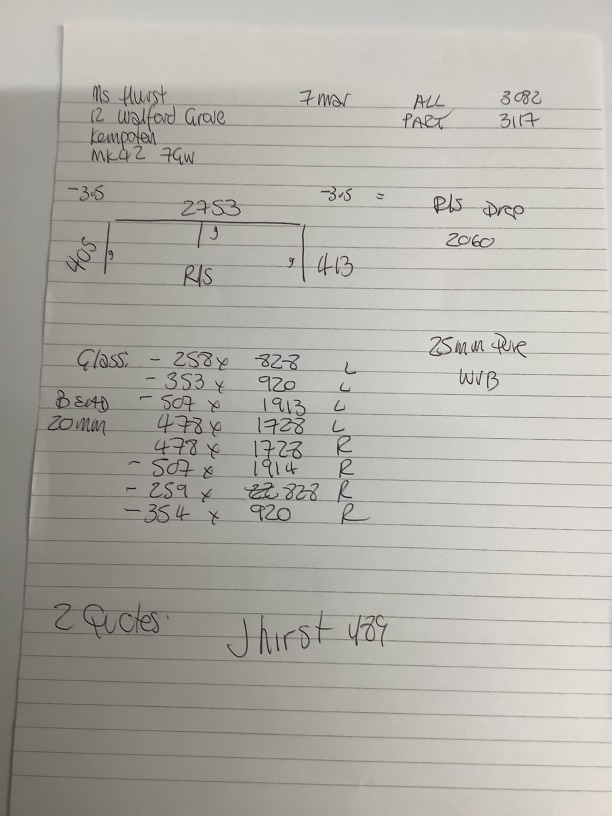 Ms Hurst 7 mar ALL 3082
12 Walford Grove PART 3117
Kempoten
MK42 7GW
-3.5 2753 -3.5 = R/S Drop
2060
405 R/S 413
25mm
Glass: - 258 x 828 L
- 353 x 920 L WVB
BEAD - 507 x 1913 L
20mm 478 x 1728 L
478 x 1728 R
- 507 x 1914 R
- 259 x 828 R
- 354 x 920 R
2 Quotes: Jhirst 489